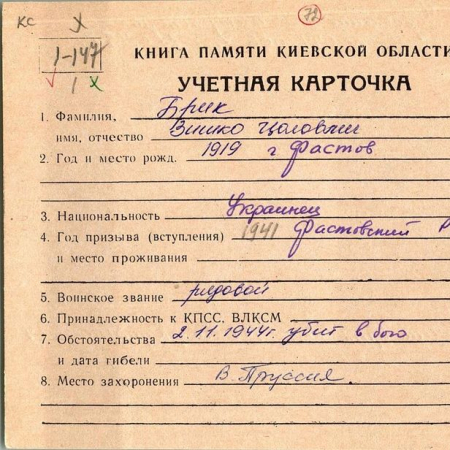 КС X 72
1-147
1 X
КНИГА ПАМЯТИ КИЕВСКОЙ ОБЛАСТИ
УЧЕТНАЯ КАРТОЧКА
1. Фамилия, Брик
имя, отчество Зинко Цоловии
2. Год и место рожд. 1919 г Фастов
3. Национальность Украинец
4. Год призыва (вступления) 1941 Фастовский Р
и место проживания
5. Воинское звание рядовой
6. Принадлежность к КПСС, ВЛКСМ
7. Обстоятельства 2.11.1944г. убит в бою
и дата гибели
8. Место захоронения В. Пруссия.